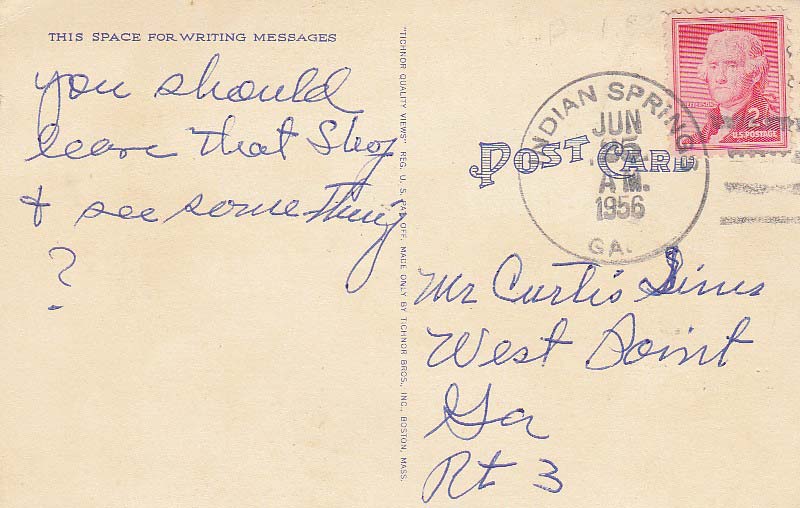 THIS SPACE FOR WRITING MESSAGES
you should
leave that Shop
& see something
?
"TICHNOR QUALITY VIEWS" REG. U. S. PAT. OFF. MADE ONLY BY TICHNOR BROS., INC., BOSTON, MASS.
POST CARD
INDIAN SPRINGS
JUN
AM.
1956
GA.
JEFFERSON
2¢
U.S. POSTAGE
Mr Curtis
West Point
Ga
Rt 3